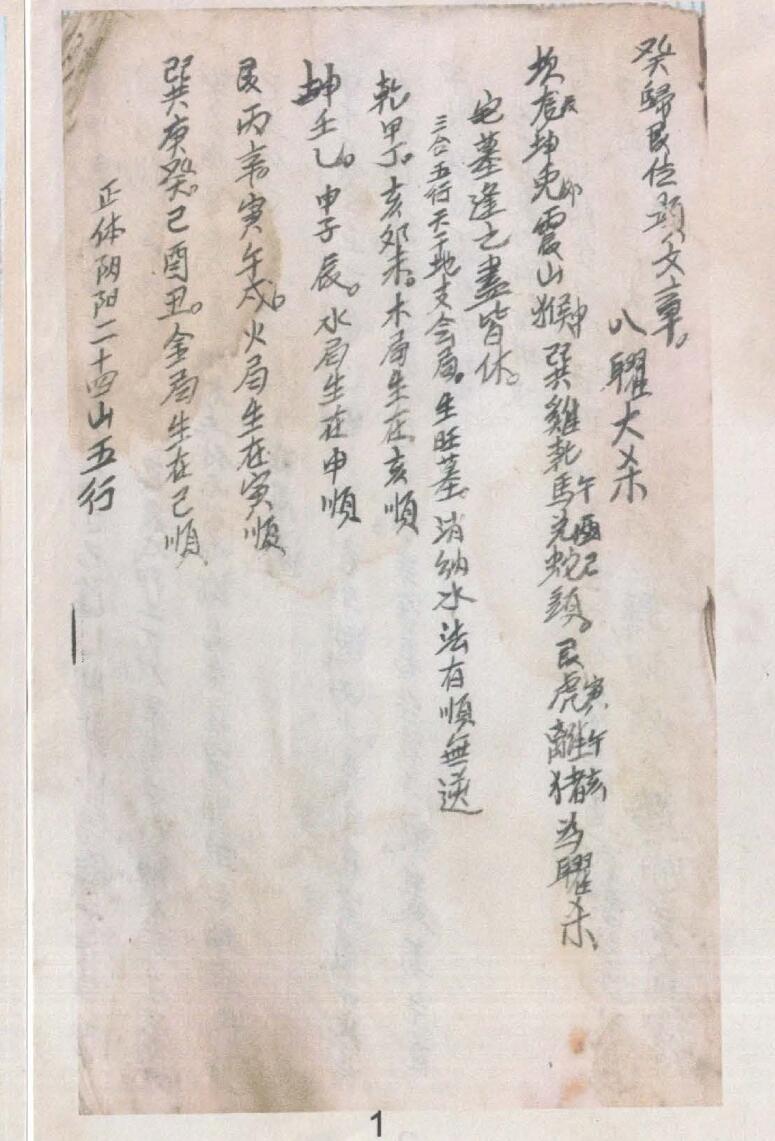 癸歸艮位文章。
八曜大杀
坎龙辰坤兔卯震山猴申巽雞乾馬午兌酉蛇巳頭。艮虎寅離午猪亥為曜杀
宅墓逢之盡皆休。
三合五行天干地支会局。生旺墓。消纳水法有順無逆
乾甲丁。亥卯未。木局生在亥順
坤壬乙。申子辰。水局生在申順
艮丙辛寅午戌。火局生在寅順
巽庚癸。己酉丑。金局生在己順
正体阴阳二十四山五行
1